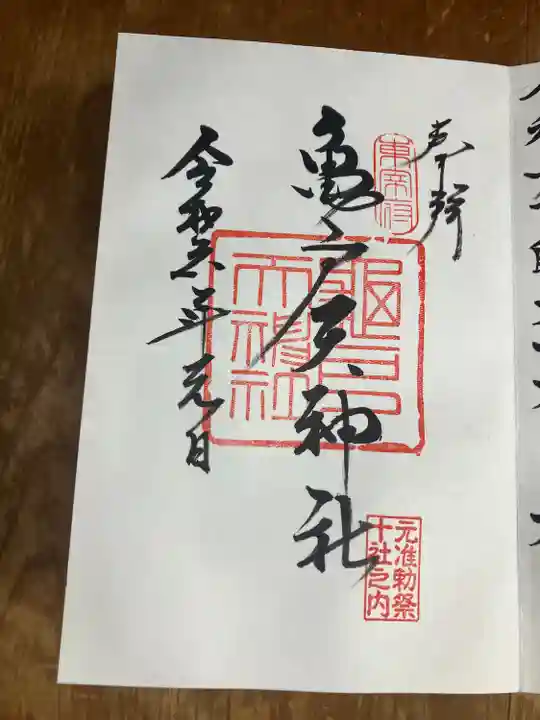 奉拝
東宰府
亀戸天神社
亀戸
天神社
元准勅祭
十社之内
令和六年元日